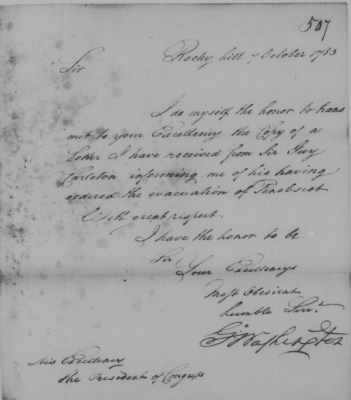 507
Rocky hill 7 October 1783
Sir
I do myself the honor to trans
mit to your Excellency the Copy of a
Letter I have received from Sir Guy
Carleton informing me of his having
ordered the evacuation of Penobscot
With great respect
I have the honor to be
Sir
Your Excellencys
Most Obedient
humble Servt
Go Washington
His Excellency
The President of Congress